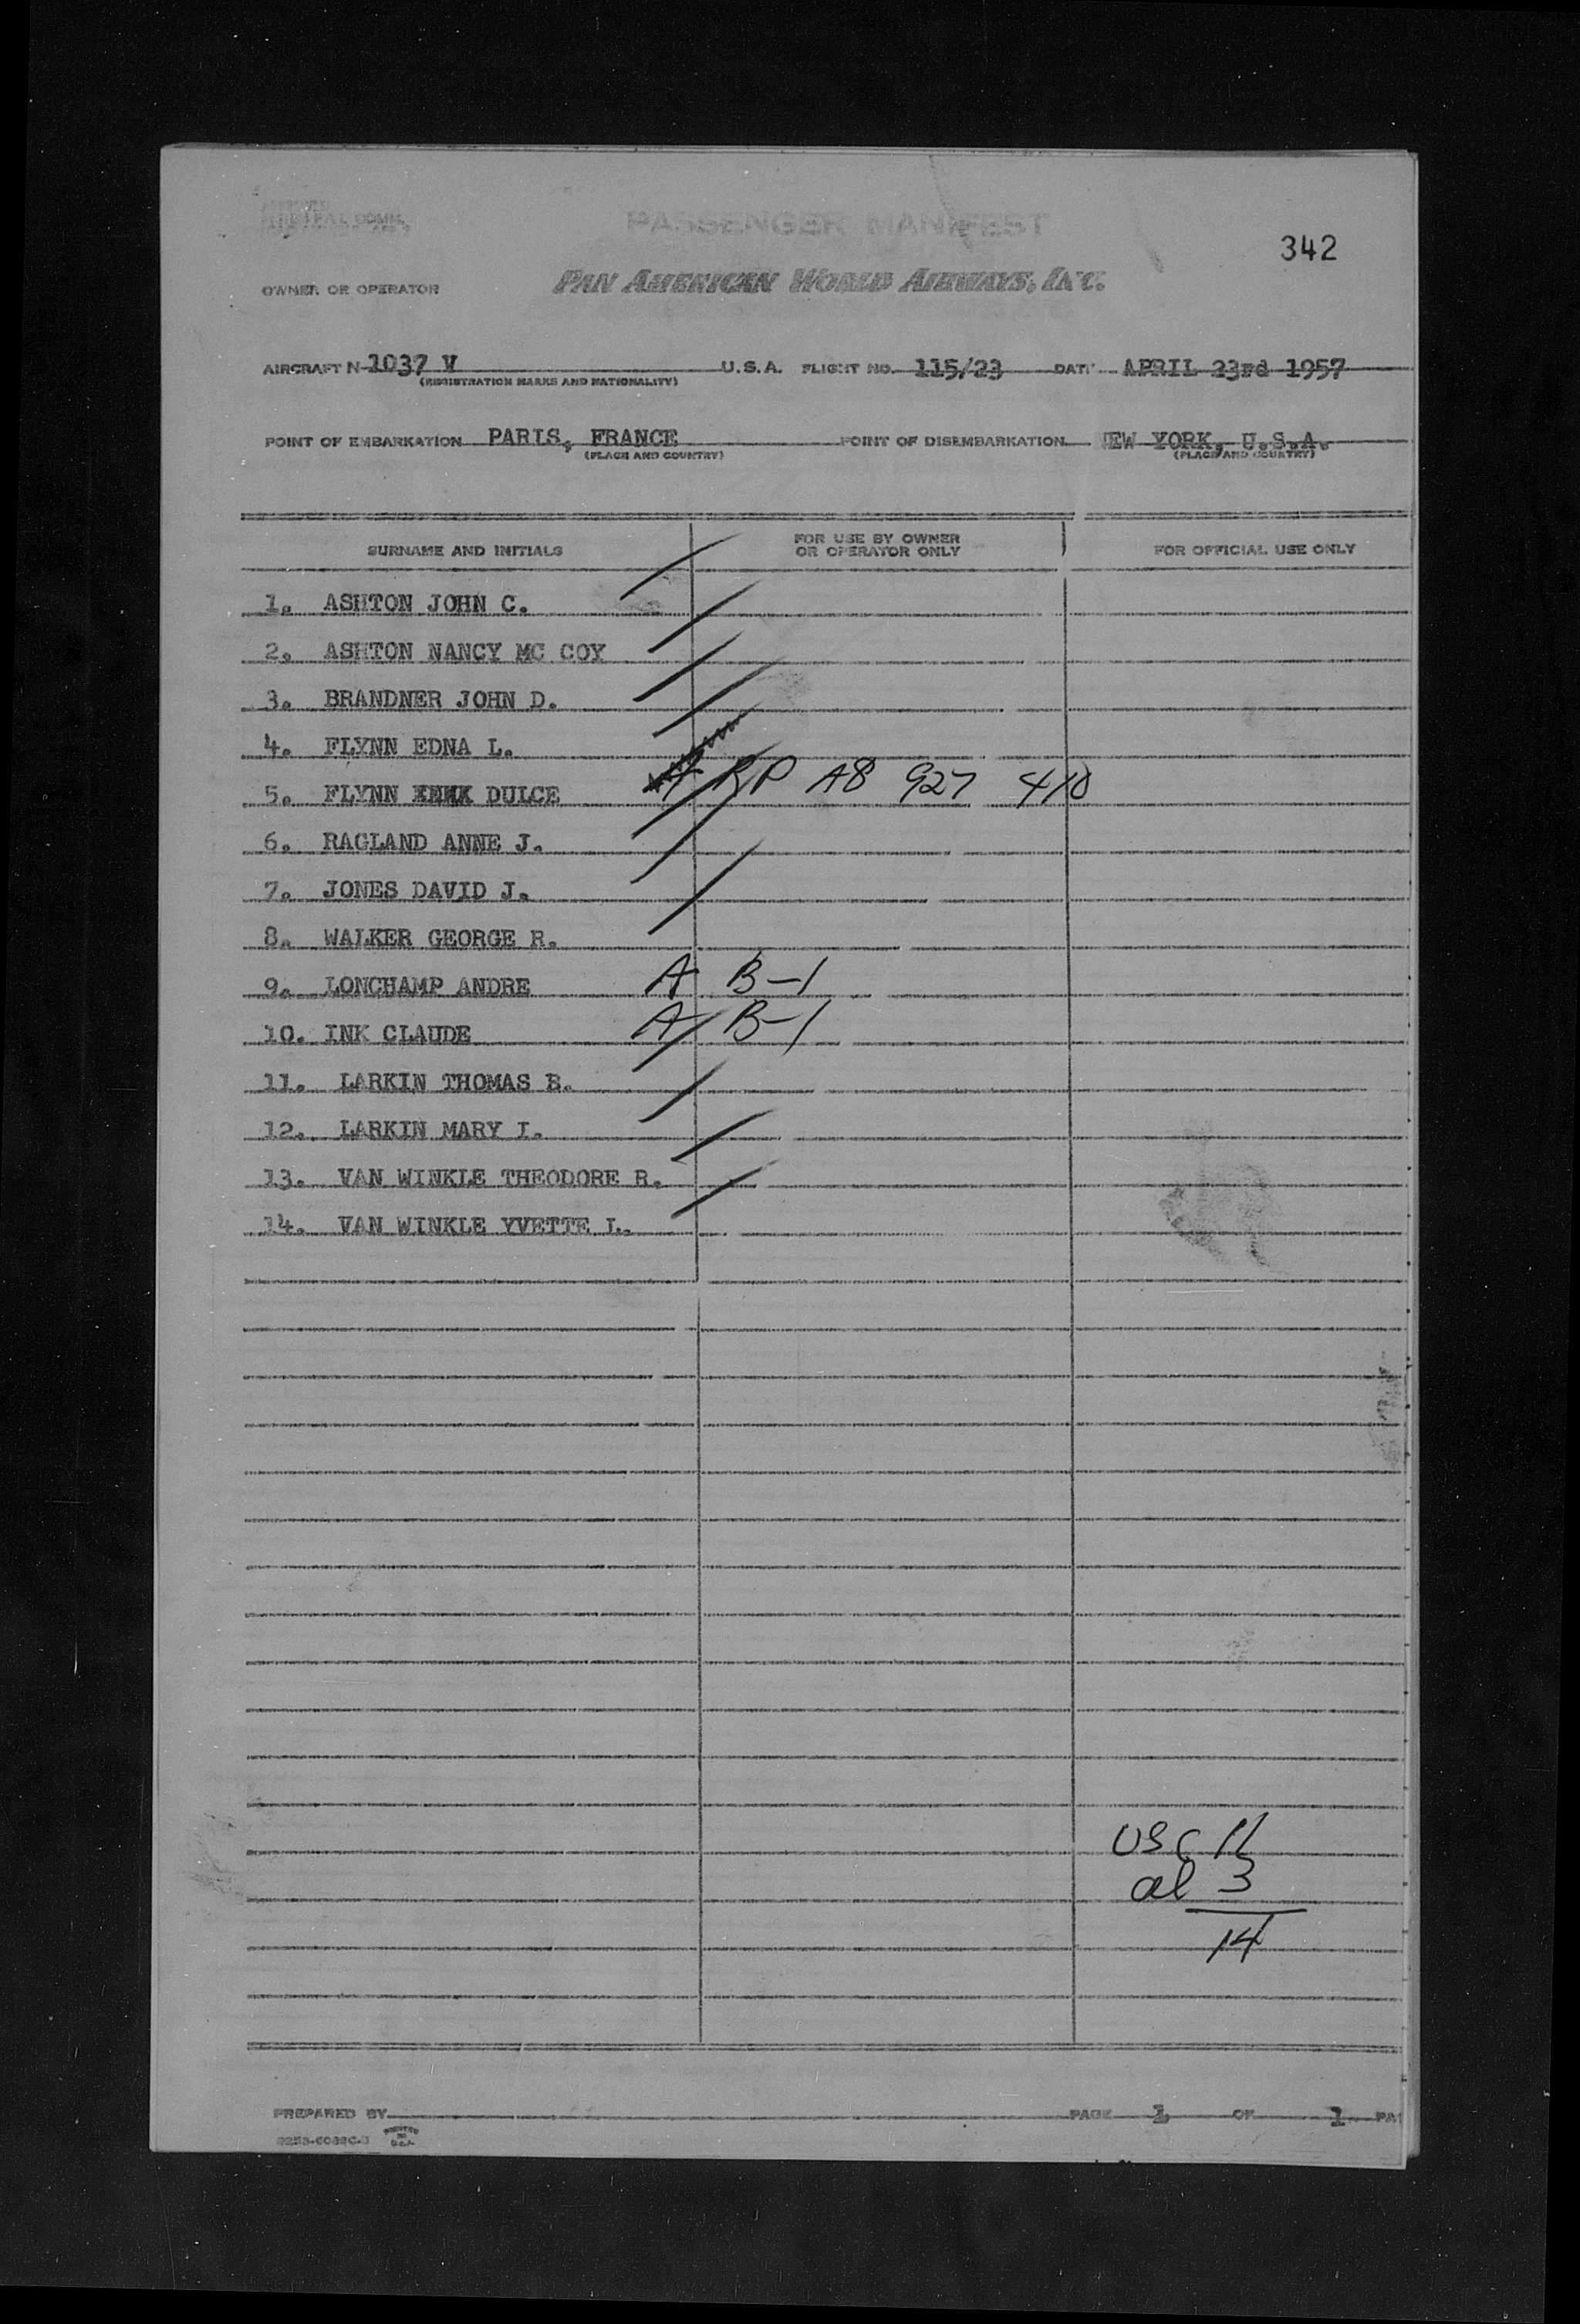 PASSENGER MANIFEST
342
OWNER OR OPERATOR PAN AMERICAN WORLD AIRWAYS, INC.
AIRCRAFT N-1037 V U.S.A. FLIGHT NO. 115/23 DATE APRIL 23rd 1957
(REGISTRATION MARKS AND NATIONALITY)
POINT OF EMBARKATION PARIS, FRANCE POINT OF DISEMBARKATION EW YORK, U.S.A.
(PLACE AND COUNTRY) (PLACE AND COUNTRY)
SURNAME AND INITIALS FOR USE BY OWNER OR OPERATOR ONLY FOR OFFICIAL USE ONLY
1. ASHTON JOHN C.
2. ASHTON NANCY MC COY
3. BRANDNER JOHN D.
4. FLYNN EDNA L.
5. FLYNN DULCE A RP A8 927 410
6. RAGLAND ANNE J.
7. JONES DAVID J.
8. WALKER GEORGE R.
9. LONCHAMP ANDRE A B-1
10. INK CLAUDE A B-1
11. LARKIN THOMAS B.
12. LARKIN MARY I.
13. VAN WINKLE THEODORE R.
14. VAN WINKLE YVETTE L.
USC 11
al 3
14
PREPARED BY PAGE 1 OF 1 PA